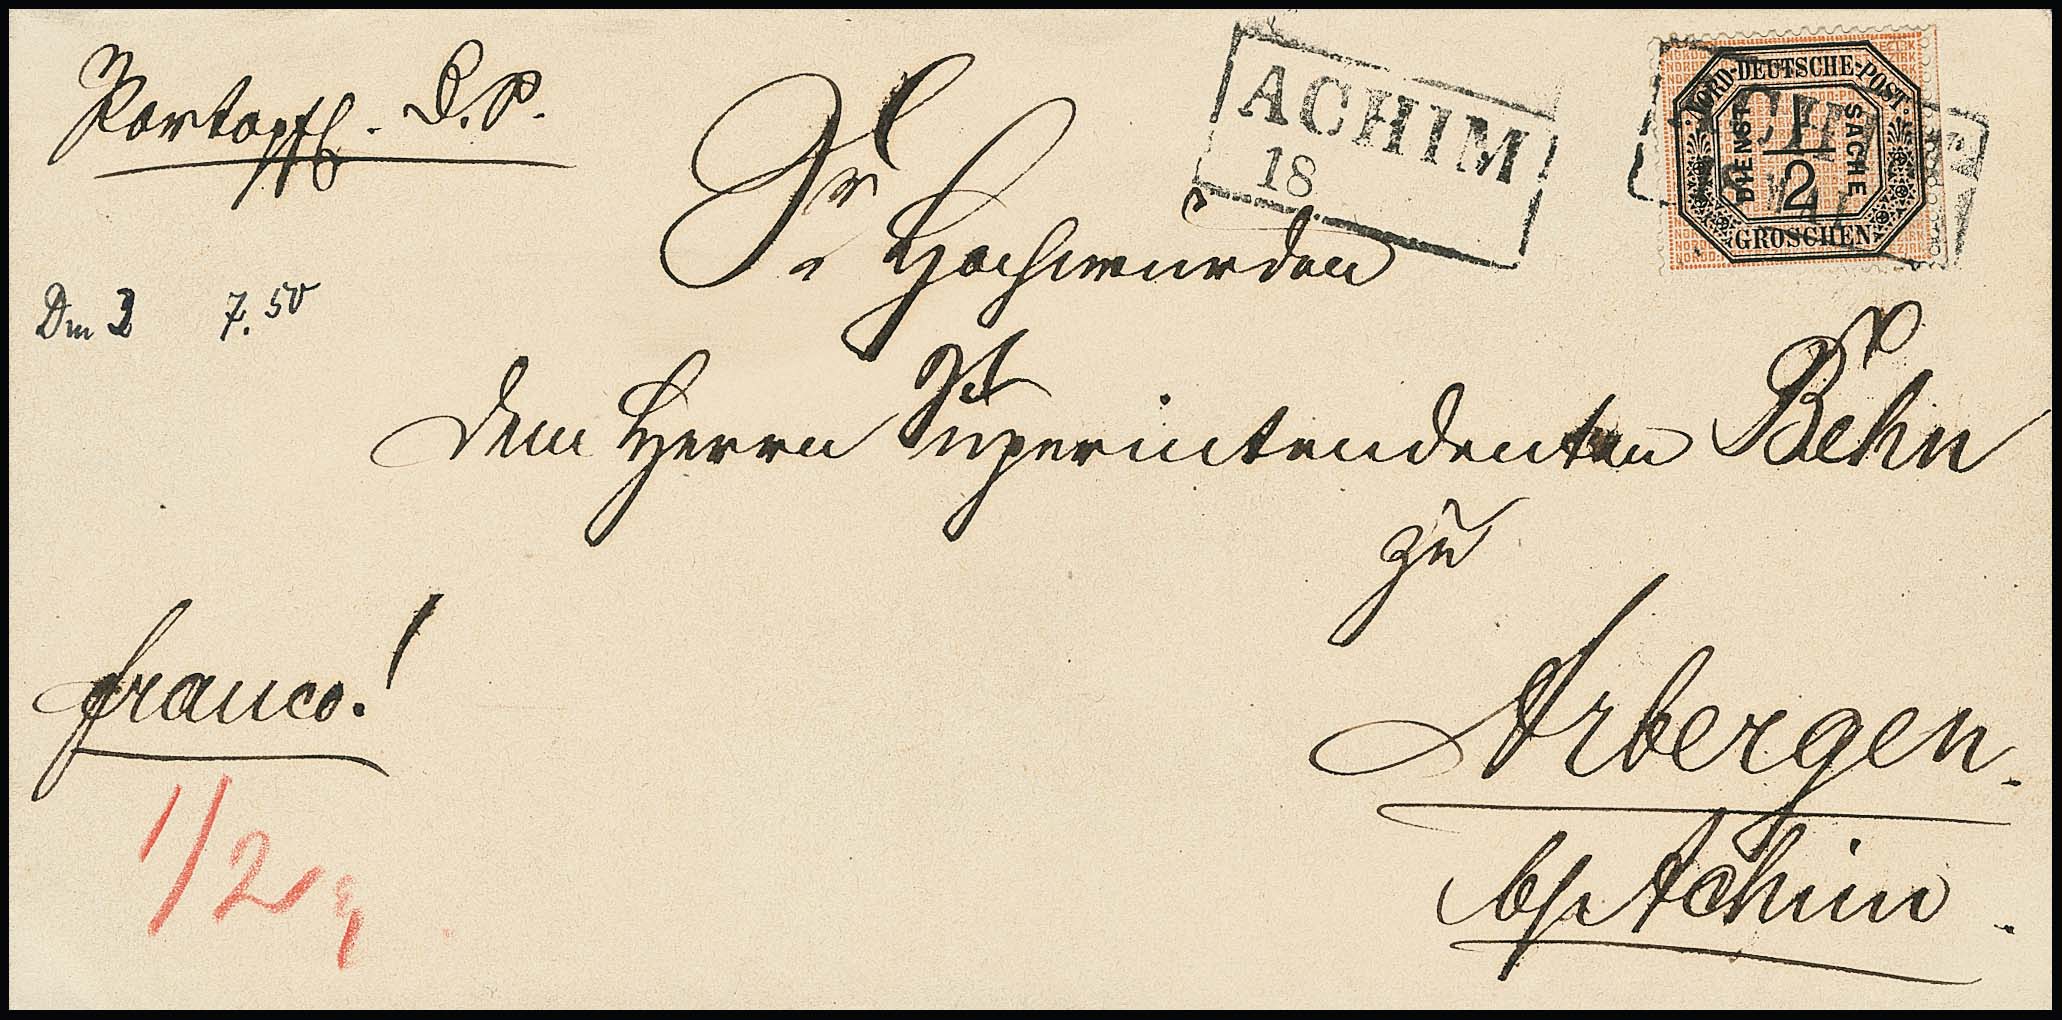 Portopfl. D. S.
ACHIM
18
NORD-DEUTSCHE-POST
DIENST SACHE
1/2
GROSCHEN
ACHIM
Sr Hochwürden
Dm 3 7.50
dem Herrn Superintendenten Behn
zu
franco!
Arbergen.
1/2
b/ Achim.